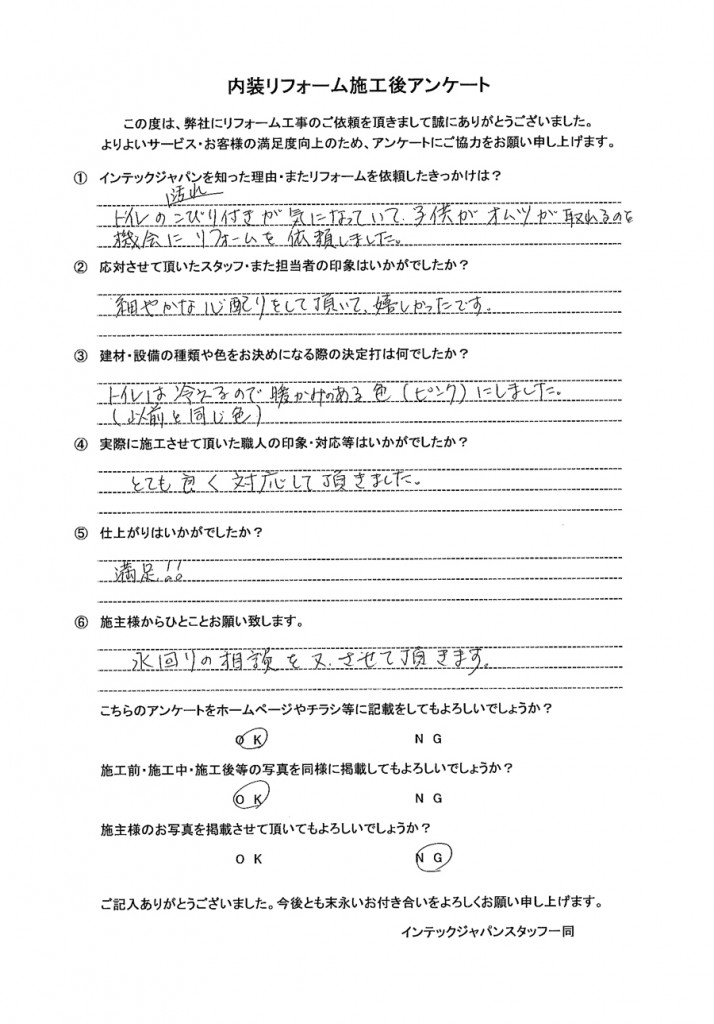 内装リフォーム施工後アンケート
この度は、弊社にリフォーム工事のご依頼を頂きまして誠にありがとうございました。
よりよいサービス・お客様の満足度向上のため、アンケートにご協力をお願い申し上げます。
① インテックジャパンを知った理由・またリフォームを依頼したきっかけは？
汚れ
トイレのこびり付きが気になっていて、子供がオムツが取れるのを
機会にリフォームを依頼しました。
② 応対させて頂いたスタッフ・また担当者の印象はいかがでしたか？
細やかな心配りをして頂いて、嬉しかったです。
③ 建材・設備の種類や色をお決めになる際の決定打は何でしたか？
トイレは冷えるので暖かみのある色（ピンク）にしました。
（以前と同じ色）
④ 実際に施工させて頂いた職人の印象・対応等はいかがでしたか？
とても良く対応して頂きました。
⑤ 仕上がりはいかがでしたか？
満足！！
⑥ 施主様からひとことお願い致します。
水回りの相談を又、させて頂きます。
こちらのアンケートをホームページやチラシ等に記載をしてもよろしいでしょうか？
ＯＫ ＮＧ
施工前・施工中・施工後等の写真を同様に掲載してもよろしいでしょうか？
ＯＫ ＮＧ
施主様のお写真を掲載させて頂いてもよろしいでしょうか？
ＯＫ ＮＧ
ご記入ありがとうございました。今後とも末永いお付き合いをよろしくお願い申し上げます。
インテックジャパンスタッフ一同